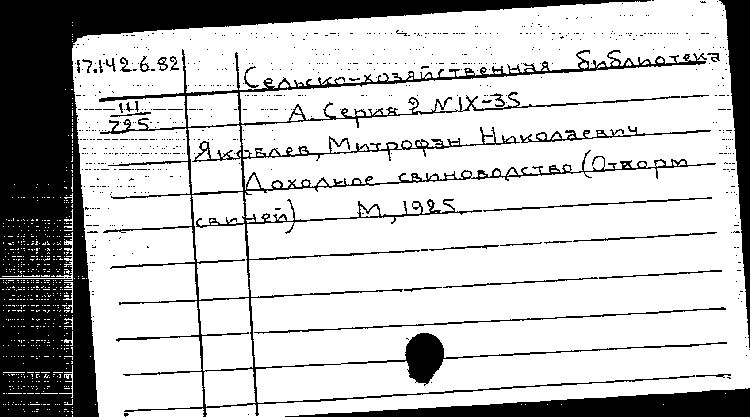 17.142.6.82
Сельско-хозяйственная библиотека
III
795
А. Серия 2 № IX-35
Яковлев, Митрофан Николаевич
Доходное свиноводство (Откорм
свиней) М., 1925.